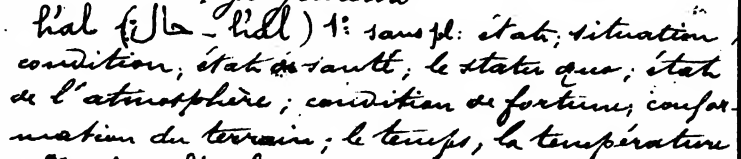 hâl (حال - hâl) 1: sans pl: état, situation,
condition; état de santé; le statu quo; état
de l'atmosphère; condition de fortune; confor-
mation du terrain; le temps, la température